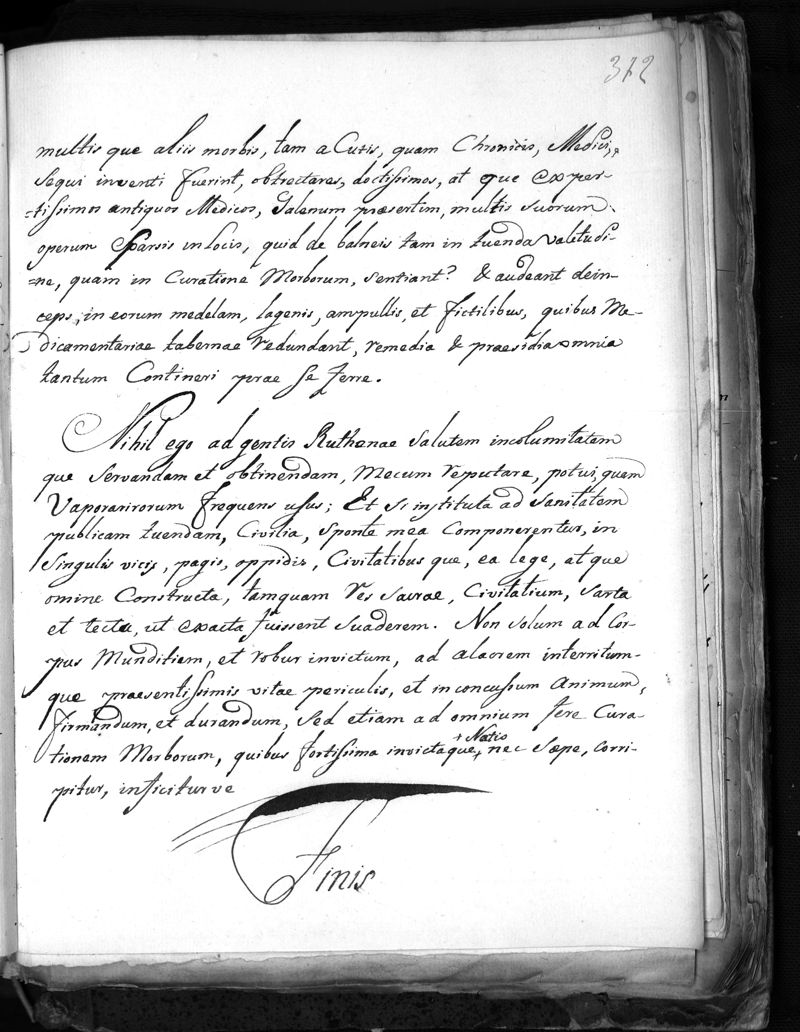 312
multis que aliis morbis, tam aCutis, quam Chronicis, Medici,
Sequi inventi fuerint, obtrectares, doctissimos, at que Exper-
=tissimos antiquos Medicos, Galenum praesertim, multis suorum
operum Sparsis in locis, quid de balneis tam in tuenda Valetudi-
=ne, quam in Curatione Morborum, sentiant? & audeant dein-
ceps, in eorum medelam, lagenis, ampullis, et fictilibus, quibus Me-
dicamentariae tabernae redundant, remedia & praesidia omnia
tantum Contineri prae se ferre.
Nihil ego ad gentis Ruthenae Salutem incolumitatem
que Servandam et obtinendam, Mecum reputare, potui, quam
Vaporariorum frequens usus; Et Si instituta ad Sanitatem
publicam tuendam, Civilia, Sponte mea Componerentur, in
Singulis vicis, pagis, oppidis, Civitatibus que, ea lege, at que
omine Constructa, tamquam res Sacrae, Civitatium, Sarta
et tecta, ut exacta fuissent Suaderem. Non Solum ad Cor-
pus Munditiem, et robur invictum, ad alacrem interritum-
que praesentissimis vitae periculis, et inconcussum Animum,
firmandum, et durandum, Sed etiam ad omnium fere Cura-
tionem Morborum, quibus fortissima invictaque + Natio + nec Saepe, Corri-
pitur, inficitur ve
Finis